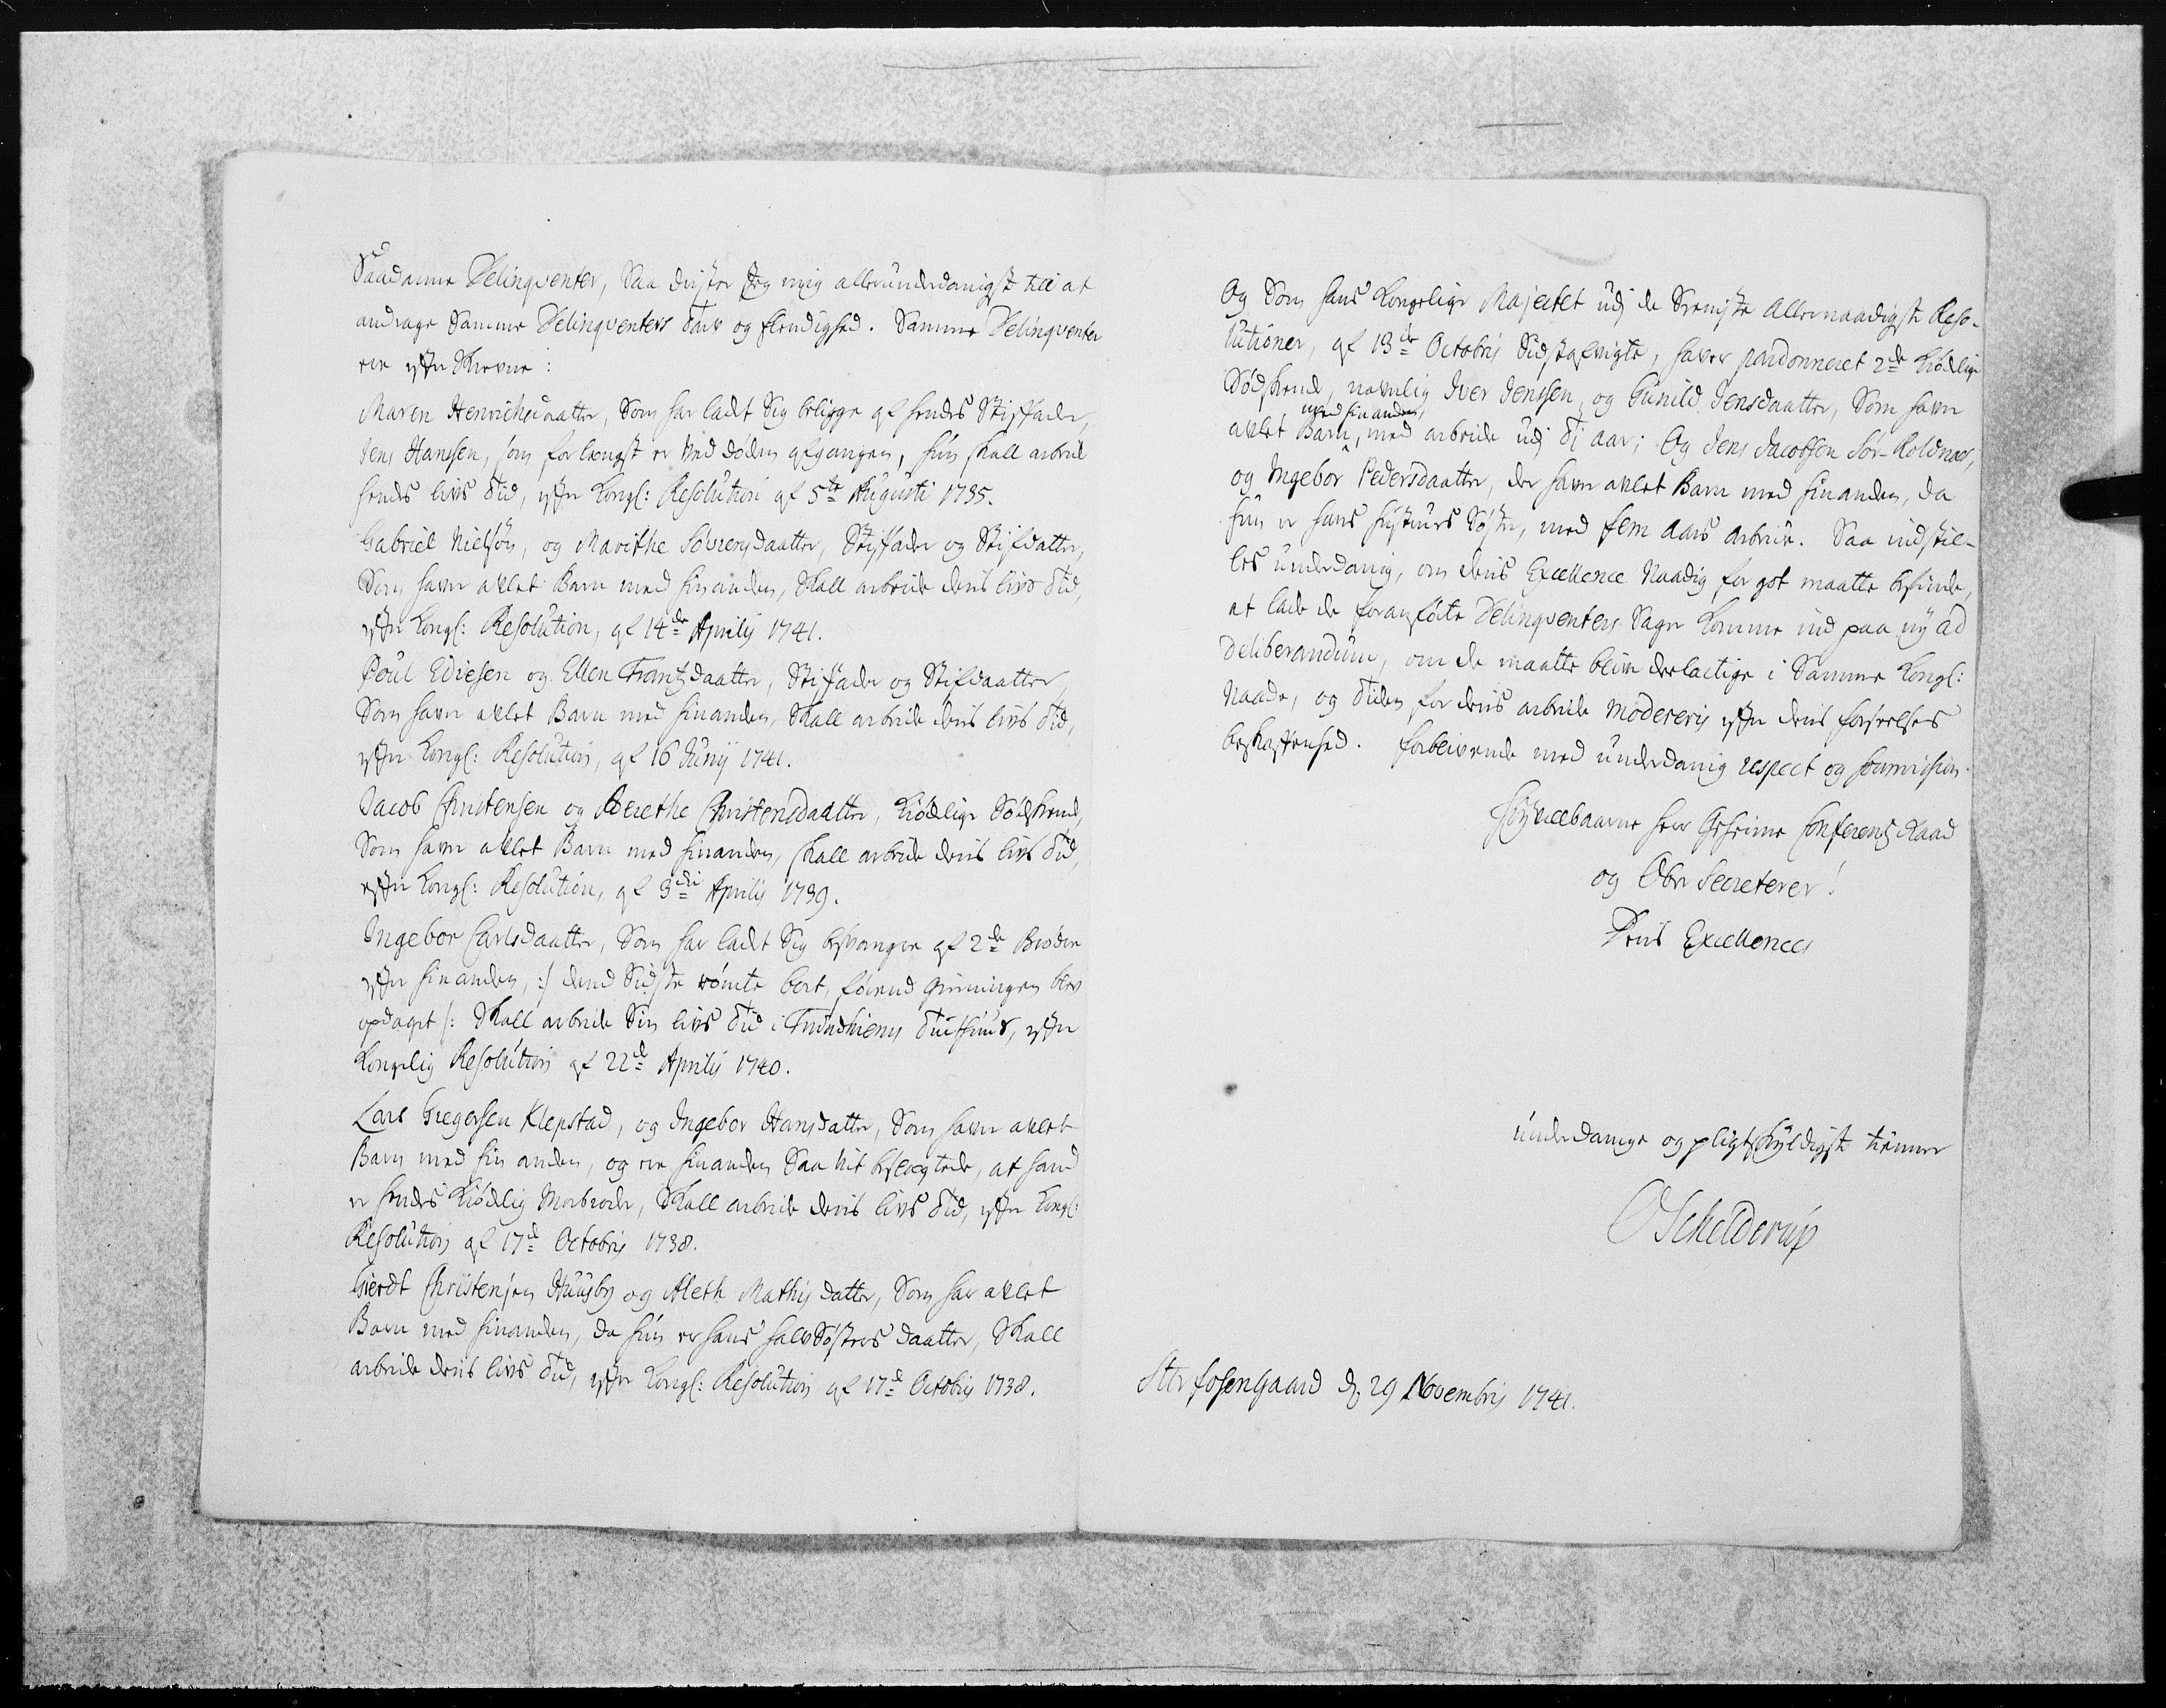 Saadanne Delinqventer, Saa drister Jeg mig allerunderdanigst till at
andrage Samme Delinqventers Tarv og Elendighed. Samme Delinqventer
ere efter Skrevne:
Maren Henrichsdaatter, Som har ladt Sig beligge af hendes Stiffader,
Jens Hanssen, som forlængst er ved døden afgangen, hun skall arbeide
hendes livs Tid, efter Kongl: Resolution af 5te Augusti 1735.
Gabriel Nielsøn, og Marithe Sørensdaatter, Stiffader og Stifdatter,
Som haver avlet Barn med hinanden, Skall arbeide deris livs Tid,
efter Kongl: Resolution, af 14de Aprilij 1741.
Poul Ediesen og Ellen Frantzdaatter, Stiffader og Stifdaatter,
Som haver avlet Barn med hinanden, Skall arbeide deris livs Tid,
efter Kongl: Resolution, af 16 Junij 1741.
Jacob Christensen og Berethe Christensdaatter, Kiødelige Sødskend,
Som haver avlet Barn med hinanden, skall arbeide deris livs Tid,
efter Kongl: Resolution, af 3die Aprilij 1739.
Ingebor Carlsdaatter, Som har ladt Sig besvangre af 2de Brødre
efter hinanden, :/ dend Sidste rømte bort, førend Gierningen blev
opdaget /: Skall arbeide Sin livs Tid i Trundhiems Tuchthuus, efter
Kongelig Resolution af 22d Aprilij 1740.
Lars Gregersen Klepstad, og Ingebor Hansdatter, Som haver avlet
Barn med hin anden, og ere hinanden Saa vit beslægtede, at hand
er hendes Kiødelig Morbroder, Skall arbeide deris livs Tid, efter Kongl:
Resolution af 17d Octobris 1738.
Gierdt Christensen Huusby og Aleth Mathisdatter, Som har avlet
Barn med hinanden, da hun er hans halv Søsters daatter, Skall
arbeide deris livs Tid, efter Kongl: Resolution af 17d Octobris 1738.
Og Som hans Kongelige Majestet udj de Seeniste Allernaadigste Reso-
lutioner, af 13de Octobris Sidstafvigte, haver pardonneret 2de Kiødelige
Sødskende, navnlig Iver Jenssen, og Gunild Jensdaatter, Som haver
avlet Barn med hinanden, med arbeide udj Ti Aar; Og Jens Jacobsen Sør-Koldnæs,
og Ingebor Pedersdaatter, der haver avlet Barn med hinanden, da
hun er hans hustrues Søster, med fem Aars Arbeide. Saa indstil-
les underdanig, om deris Excellence Naadig for got maatte befinde,
at lade de foranførte Delinqventers Sager Komme ind paa ny ad
Deliberandum, om de maatte blive deelactige i Samme Kongl:
Naade, og Tiden for deris arbeide modereris efter deris forseelses
beskaffenhed. Forblivende med underdanig respect og soumission
Høyvelbaarne Herr Geheime Conferentz Raad
og Ober Secreterer!
Deris Excellences
underdanige og pligtskyldigste tiener
O Schelderup
Stor Fosengaard d. 29 Novembris 1741.